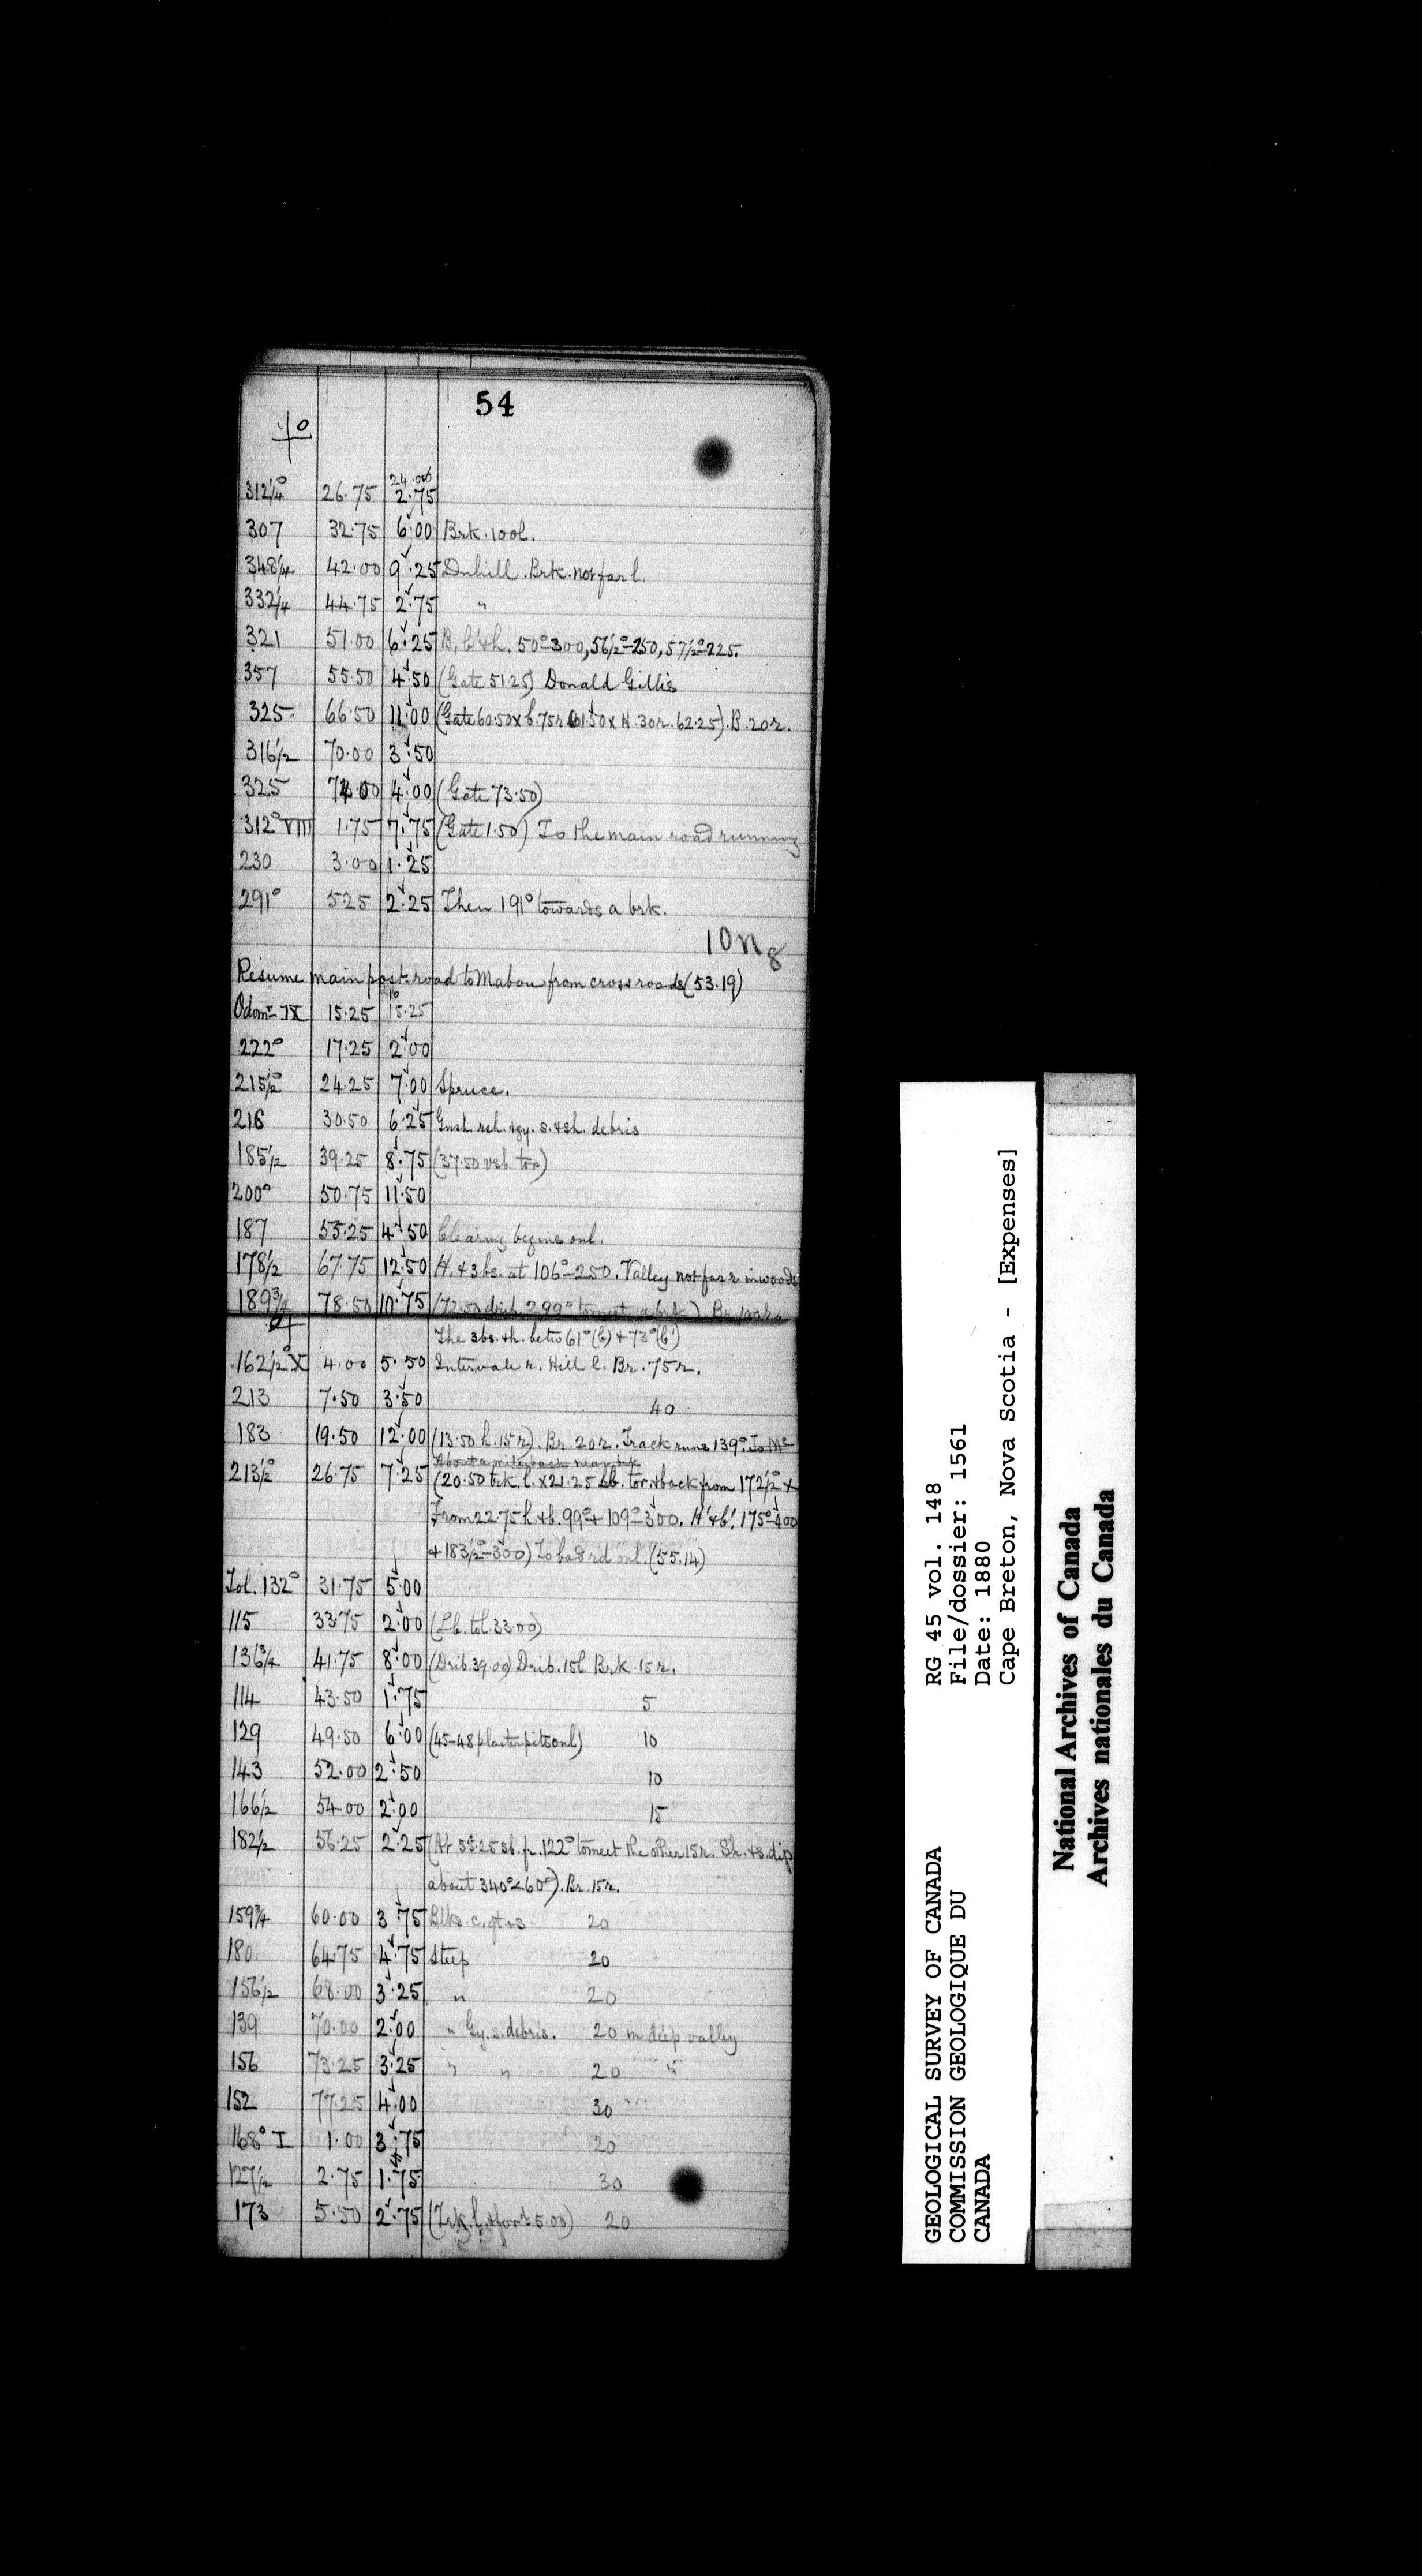 54
312 1/4° 26.75 24.00 2.75
307 32.75 6.00 Brk. 100l.
348 1/4 42.00 9.25 Dnhill. Brk. not far l.
332 1/4 44.75 2.75 "
321 51.00 6.25 B, b' & h. 50°-300, 56 1/2°-250, 57 1/2°-225.
357 55.50 4.50 (Gate 51.25) Donald Gillis
325 66.50 11.00 (Gate 60.50 x b. 75r 61.50 x H. 30r. 62.25). B. 20r.
316 1/2 70.00 3.50
325 74.00 4.00 (Gate 73.50)
312° VIII 1.75 7.75 (Gate 1.50) To the main road running
230 3.00 1.25
291° 5.25 2.25 Then 191° towards a brk.
10 n 8
Resume main post-road to Mabou from cross roads (53.19)
Odomr IX 15.25 15.25
222° 17.25 2.00
215 1/2° 24.25 7.00 Spruce.
216 30.50 6.25 Gnsh. rsh. & gy. s. & sh. debris
185 1/2 39.25 8.75 (37.50 tor)
200° 50.75 11.50
187 55.25 4.50 Clearing begins on l.
178 1/2 67.75 12.50 H. & 3 bs. at 106°-250. Valley not far r. in woods
189 3/4 78.50 10.75 (72.50 299° to meet a brk) Br. 100r.
The 3 bs. & h. betw 61° (b) & 73° (b')
162 1/2° X 4.00 5.50 Intervale r. Hill l. Br. 75r.
213 7.50 3.50 40
183 19.50 12.00 (13.50 h. 15r). Br. 20r. Track runs 139°. To Mc
About a mile back near brk
213 1/2° 26.75 7.25 (20.50 brk. l. x 21.25 tor & back from 172 1/2° x
From 22.75 h. & b. 99° & 109°-300. H' & b'. 175°-400
& 183 1/2°-300) To bad rd on l. (55.14)
Tol. 132° 31.75 5.00
115 33.75 2.00 (Lb. tol. 33.00)
136 3/4 41.75 8.00 (Drib. 39.00) Drib. 15l. Brk. 15r.
114 43.50 1.75 5
129 49.50 6.00 (45-48 plaster pits on l) 10
143 52.00 2.50 10
166 1/2 54.00 2.00 15
182 1/2 56.25 2.25 (At 55.25 sb. fr. 122° to meet the other 15r. Sh. & s. dip
about 340° < 60°). Br. 15r.
159 3/4 60.00 3.75 Blks. c. gt & s 20
180 64.75 4.75 Steep 20
156 1/2 68.00 3.25 " 20
139 70.00 2.00 " Gy. s. debris. 20 in deep valley
156 73.25 3.25 " " 20 "
152 77.25 4.00 30
168° I 1.00 3.75 20
127 1/2 2.75 1.75 30
173 5.50 2.75 (Trk. l. & for 5.00) 20
GEOLOGICAL SURVEY OF CANADA
COMMISSION GEOLOGIQUE DU
CANADA
RG 45 vol. 148
File/dossier: 1561
Date: 1880
Cape Breton, Nova Scotia - [Expenses]
National Archives of Canada
Archives nationales du Canada